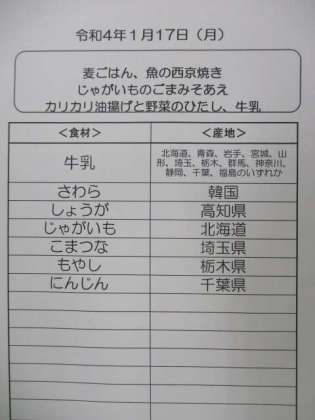 令和4年1月17日（月）
麦ごはん、魚の西京焼き
じゃがいものごまみそあえ
カリカリ油揚げと野菜のひだし、牛乳
＜食材＞ ＜産地＞
牛乳 北海道、青森、岩手、宮城、山
形、埼玉、栃木、群馬、神奈川、
静岡、千葉、福島のいずれか
さわら 韓国
しょうが 高知県
じゃがいも 北海道
こまつな 埼玉県
もやし 栃木県
にんじん 千葉県